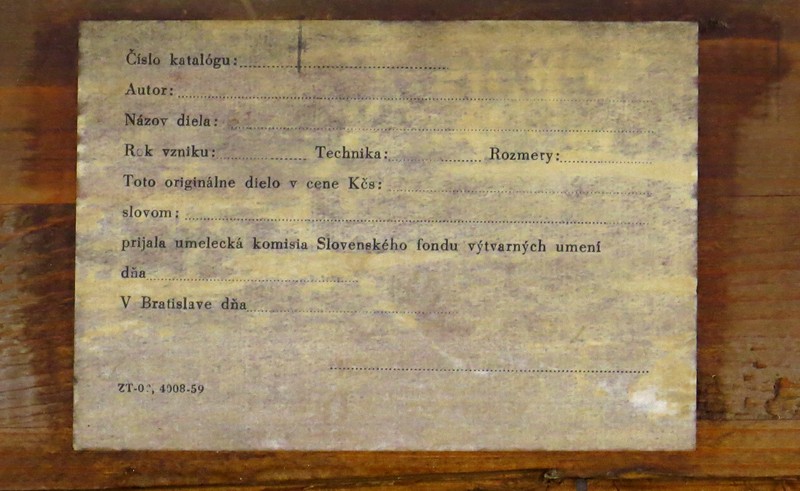 Číslo katalógu:
Autor:
Názov diela:
Rok vzniku: Technika: Rozmery:
Toto originálne dielo v cene Kčs:
slovom:
prijala umelecká komisia Slovenského fondu výtvarných umení
dňa
V Bratislave dňa
4008-59